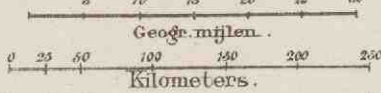 Geogr. mijlen.
0 25 50 100 150 200 250
Kilometers.